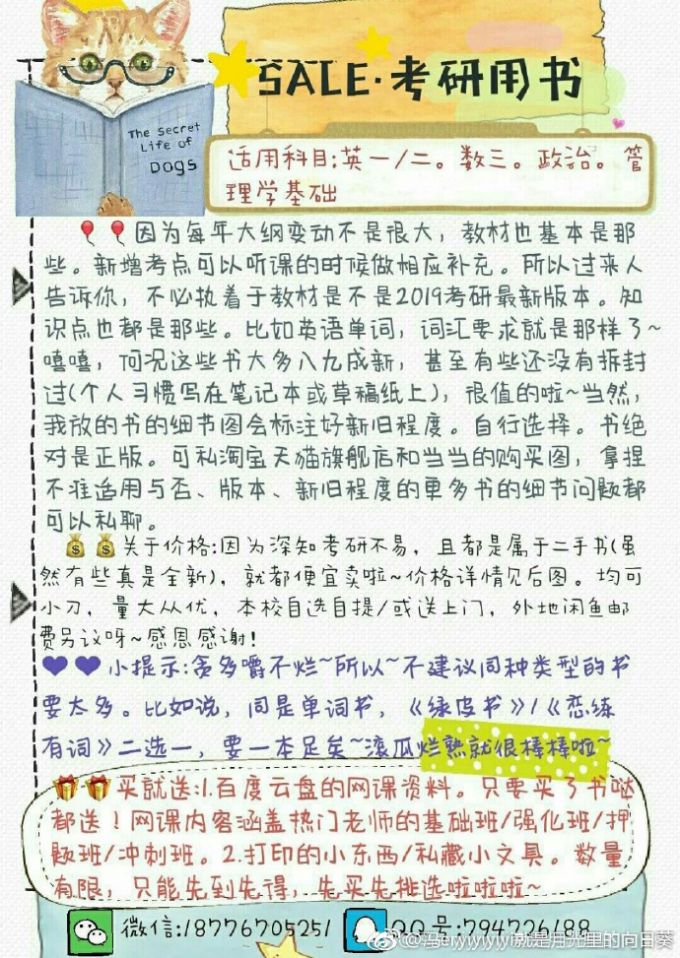 SALE·考研用书
The Secret
Life of
Dogs
适用科目:英一/二。数三。政治。管
理学基础
因为每年大纲变动不是很大，教材也基本是那
些。新增考点可以听课的时候做相应补充。所以过来人
告诉你，不必执着于教材是不是2019考研最新版本。知
识点也都是那些。比如英语单词，词汇要求就是那样了~
嘻嘻，何况这些书大多八九成新，甚至有些还没有拆封
过(个人习惯写在笔记本或草稿纸上)，很值的啦~当然，
我放的书的细节图会标注好新旧程度。自行选择。书绝
对是正版。可私淘宝天猫旗舰店和当当的购买图，拿捏
不准适用与否、版本、新旧程度的更多书的细节问题都
可以私聊。
关于价格:因为深知考研不易，且都是属于二手书(虽
然有些真是全新)，就都便宜卖啦~价格详情见后图。均可
小刀，量大从优，本校自选自提/或送上门，外地闲鱼邮
费另议呀~感恩感谢!
小提示:贪多嚼不烂~所以~不建议同种类型的书
要太多。比如说，同是单词书，《绿皮书》/《恋练
有词》二选一，要一本足矣~滚瓜烂熟就很棒棒啦~
买就送:1.百度云盘的网课资料。只要买了书哒
都送！网课内容涵盖热门老师的基础班/强化班/押
题班/冲刺班。2.打印的小东西/私藏小文具。数量
有限，只能先到先得，先买先挑选啦啦啦~
微信:18776705251 QQ号:794726188
就是月光里的向日葵